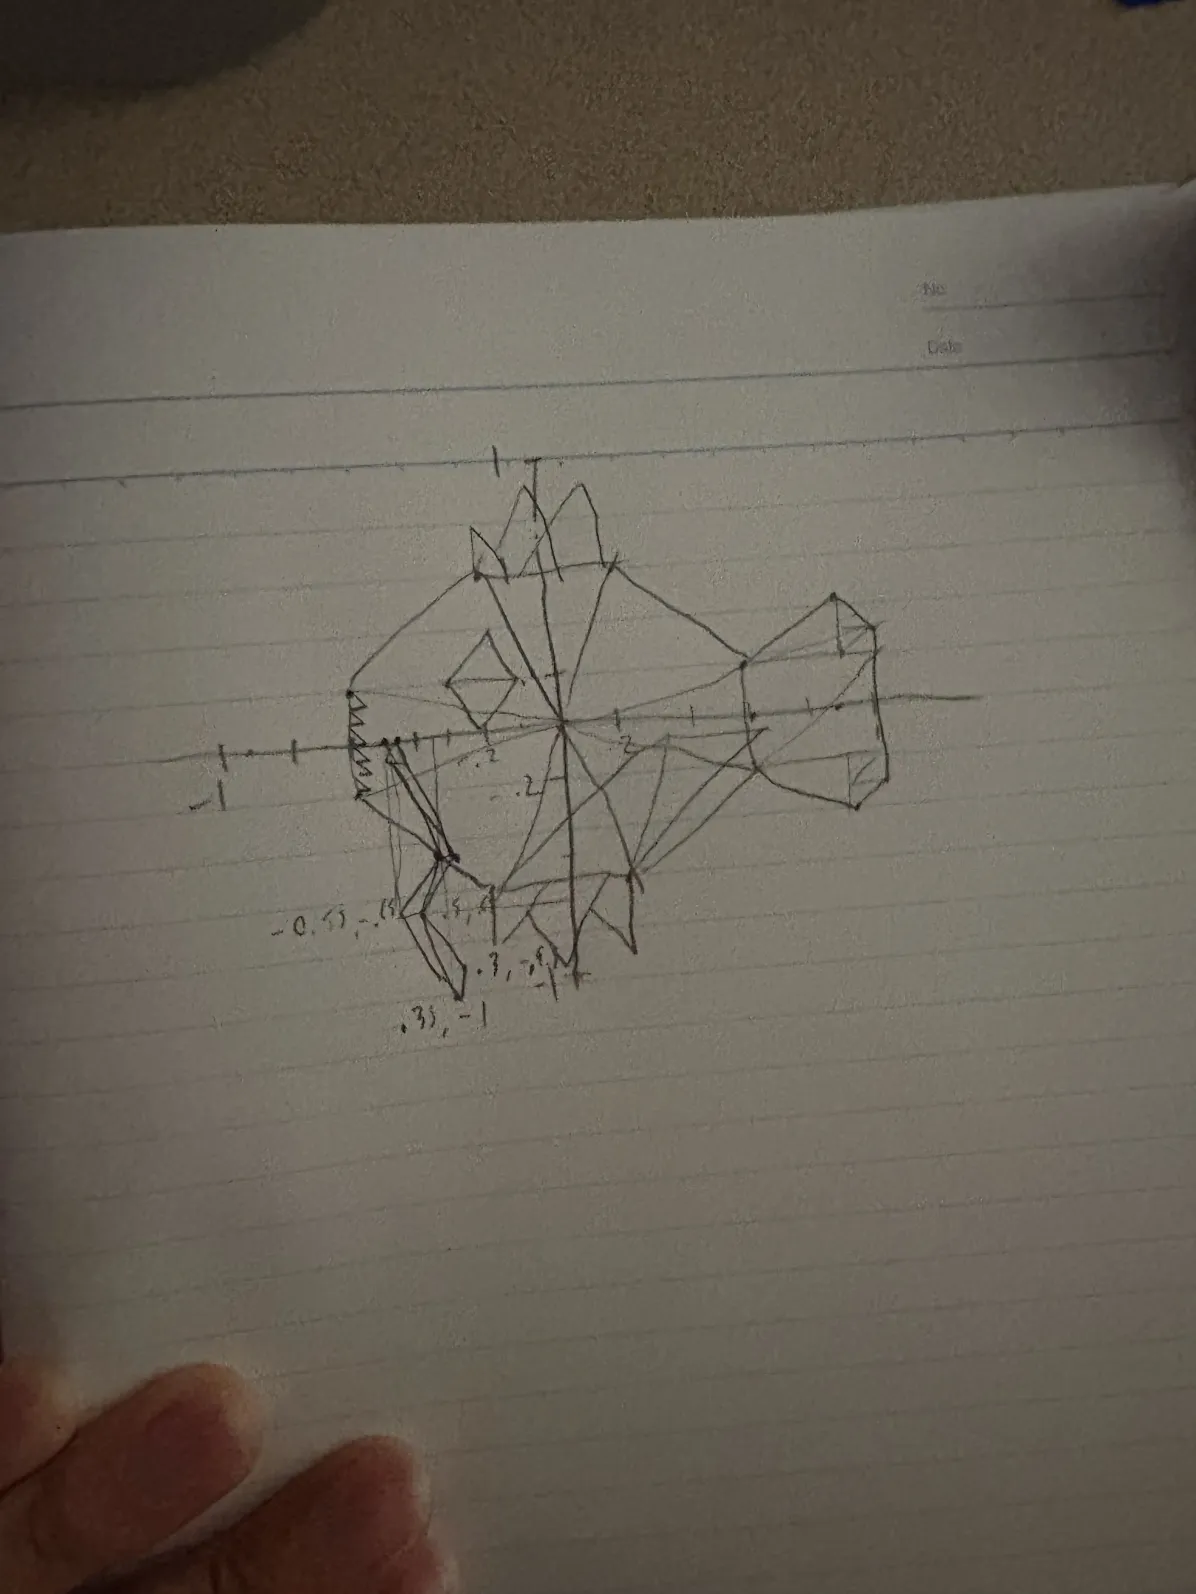 No
Date
1
-1
.2
.2
-.2
-0.55, -.75
.3, -.9
-1
.35, -1